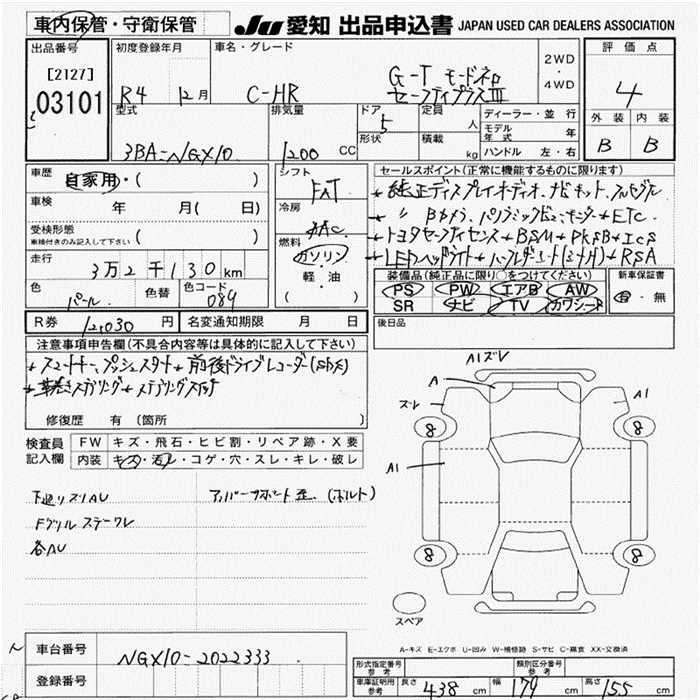 車内保管・守衛保管
JU 愛知 出品申込書 JAPAN USED CAR DEALERS ASSOCIATION
出品番号
[2127]
03101
初度登録年月
R4 12月
車名・グレード
C-HR
G-T モードネロ
セーフティプラスIII
2WD
・
4WD
評価点
4
外装 内装
B B
型式
3BA-NGX10
排気量
1200 cc
ドア
5
形状
定員
人
積載
kg
ディーラー・並行
モデル年式 年
ハンドル 左・右
車歴
自家用・( )
車検
年 月( 日)
受検形態
車検付きのみ記入して下さい ( )
走行
3万2千130km
色
パール
色替
色コード
089
シフト
FAT
冷房
AAC
燃料
ガソリン
・
軽・油
( ・ )
セールスポイント(正常に機能するものに限ります)
* 純正ディスプレイオーディオ、ナビキット、フルセグTV
* 〃 Bカメラ、パノラミックビューモニター*ETC
* トヨタセーフティセンス*BSM*PKSB*ICS
* LEDヘッドライト*ハーフレザーシート(シートH)*RSA
装備品(純正品に限り○をつけてください)
PS PW エアB AW
SR ナビ TV カワシート
新車保証書
有・無
R券 12,030円
名変通知期限 月 日
後日品
注意事項申告欄(不具合内容等は具体的に記入して下さい)
* スマートキー、プッシュスタート*前後ドライブレコーダー
* 革巻きステアリング*ステアリングスイッチ
修復歴 有 (箇所 )
検査員
記入欄
FW キズ・飛石・ヒビ割・リペア跡・X要
内装 キズ・汚レ・コゲ・穴・スレ・キレ・破レ
下廻リスリAU
アッパーサポート歪 (ボルト)
Fグリル ステーワレ
各AU
A1ズレ
A
ズレ
A1
8
8
A1
8
8
スペア
A-キズ E-エクボ U-凹み W-補修跡 S-サビ C-腐食 XX-交換済
車台番号
NGX10-2022333
登録番号
形式指定番号
参考
類別区分番号
参考
車庫証明用
参考
長さ 438 cm 幅 179 cm 高さ 155 cm